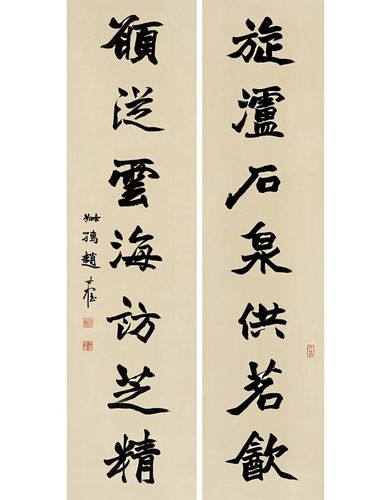 旋瀘石泉供茗㱃
願從雲海訪芝精
趙